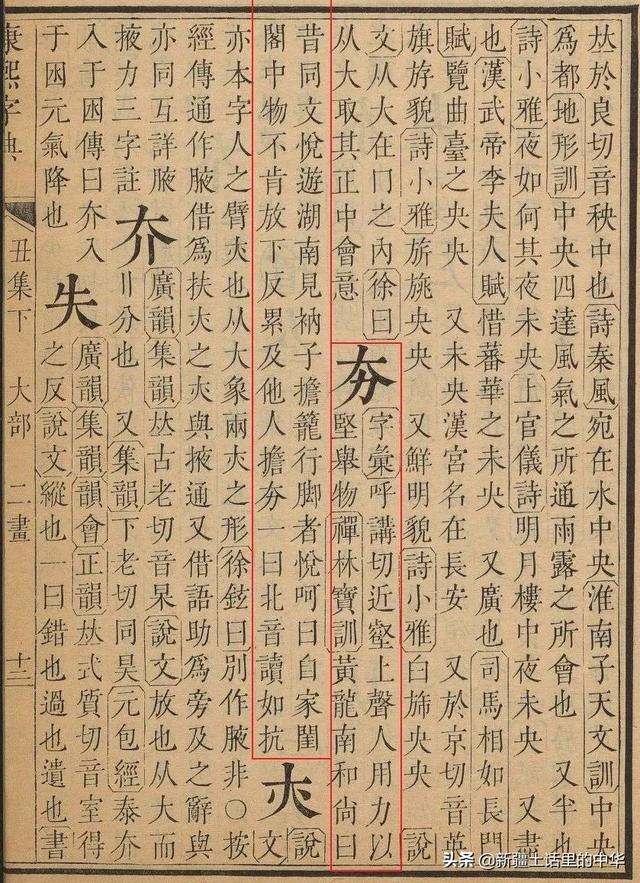 𠀤於良切音秧中也詩秦風宛在水中央淮南子天文訓中央
爲都地形訓中央四達風氣之所通雨露之所會也 又半也
詩小雅夜如何其夜未央上官儀詩明月樓中夜未央 又盡
也漢武帝李夫人賦惜蕃華之未央 又廣也司馬相如長門
賦覽曲臺之央央 又未央漢宮名在長安 又於京切音英
旗旂貌詩小雅旂旐央央 又鮮明貌詩小雅白旆央央 說
文从大在冂之內徐曰
从大取其正中會意
夯
字彙呼講切近壑上聲人用力以
堅舉物禪林寶訓黃龍南和尙曰
昔同文悅遊湖南見衲子擔籠行脚者悅呵曰自家閨
閣中物不肯放下反累及他人擔夯一曰北音讀如抗
說
文
亦本字人之臂也从大象兩之形徐鉉曰別作腋非○按
經傳通作腋借爲扶之與掖通又借語助爲旁及之辭與
亦同互詳腋
掖力三字註
夰
廣韻集韻𠀤古老切音杲說文放也从大而
分也 又集韻下老切同昊元包經泰夰
入于困傳曰夰入
于困元氣降也
失
廣韻集韻韻會正韻𠀤式質切音室得
之反說文縱也一曰錯也過也遺也書
康熙字典
丑集下 大部 二畫
十二
头条 @新疆土话里的中华